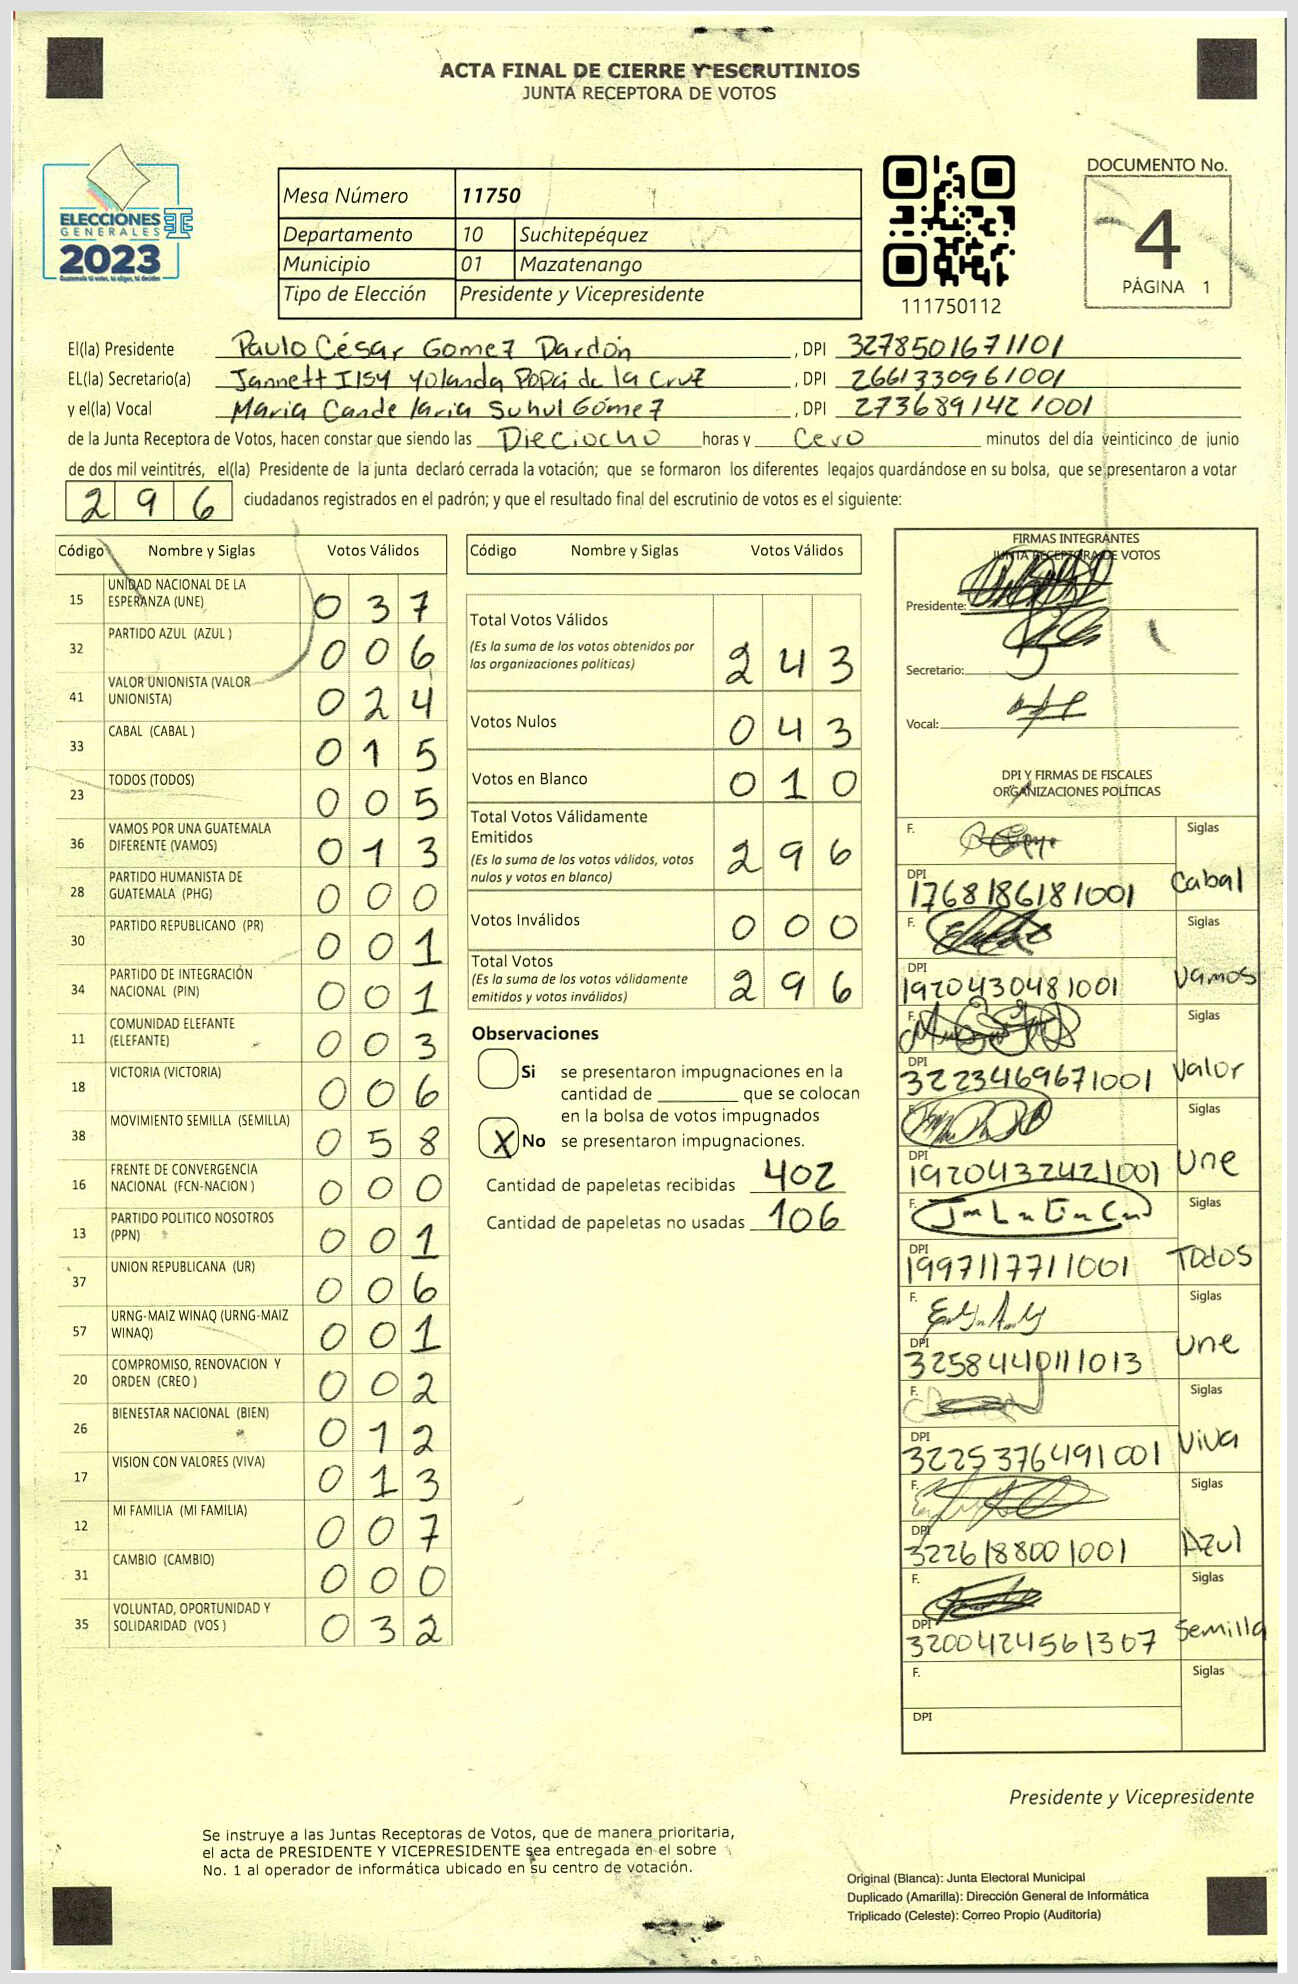 ACTA FINAL DE CIERRE Y ESCRUTINIOS
JUNTA RECEPTORA DE VOTOS
ELECCIONES
GENERALES
2023
Mesa Número 11750
Departamento 10 Suchitepéquez
Municipio 01 Mazatenango
Tipo de Elección Presidente y Vicepresidente
111750112
DOCUMENTO No.
4
PÁGINA 1
El(la) Presidente Paulo César Gomez Dardón, DPI 3278501671101
EL(la) Secretario(a) Jannett Ilsy Yolanda Popá de la Cruz, DPI 2661330961001
y el(la) Vocal Maria Candelaria Suhul Gómez, DPI 2736891421001
de la Junta Receptora de Votos, hacen constar que siendo las Dieciocho horas y Cero minutos del día veinticinco de junio
de dos mil veintitrés, el(la) Presidente de la junta declaró cerrada la votación; que se formaron los diferentes legajos guardándose en su bolsa, que se presentaron a votar
296 ciudadanos registrados en el padrón; y que el resultado final del escrutinio de votos es el siguiente:
Código Nombre y Siglas Votos Válidos
15 UNIDAD NACIONAL DE LA ESPERANZA (UNE) 037
32 PARTIDO AZUL (AZUL ) 006
41 VALOR UNIONISTA (VALOR UNIONISTA) 024
33 CABAL (CABAL ) 015
23 TODOS (TODOS) 005
36 VAMOS POR UNA GUATEMALA DIFERENTE (VAMOS) 013
28 PARTIDO HUMANISTA DE GUATEMALA (PHG) 000
30 PARTIDO REPUBLICANO (PR) 001
34 PARTIDO DE INTEGRACIÓN NACIONAL (PIN) 001
11 COMUNIDAD ELEFANTE (ELEFANTE) 003
18 VICTORIA (VICTORIA) 006
38 MOVIMIENTO SEMILLA (SEMILLA) 058
16 FRENTE DE CONVERGENCIA NACIONAL (FCN-NACION ) 000
13 PARTIDO POLITICO NOSOTROS (PPN) 001
37 UNION REPUBLICANA (UR) 006
57 URNG-MAIZ WINAQ (URNG-MAIZ WINAQ) 001
20 COMPROMISO, RENOVACION Y ORDEN (CREO ) 002
26 BIENESTAR NACIONAL (BIEN) 012
17 VISION CON VALORES (VIVA) 013
12 MI FAMILIA (MI FAMILIA) 007
31 CAMBIO (CAMBIO) 000
35 VOLUNTAD, OPORTUNIDAD Y SOLIDARIDAD (VOS ) 032
Código Nombre y Siglas Votos Válidos
Total Votos Válidos
(Es la suma de los votos obtenidos por
las organizaciones políticas) 243
Votos Nulos 043
Votos en Blanco 010
Total Votos Válidamente
Emitidos
(Es la suma de los votos válidos, votos
nulos y votos en blanco) 296
Votos Inválidos 000
Total Votos
(Es la suma de los votos válidamente
emitidos y votos inválidos) 296
Observaciones
Si se presentaron impugnaciones en la
cantidad de ________ que se colocan
en la bolsa de votos impugnados
X No se presentaron impugnaciones.
Cantidad de papeletas recibidas 402
Cantidad de papeletas no usadas 106
FIRMAS INTEGRANTES
JUNTA RECEPTORA DE VOTOS
Presidente:
Secretario:
Vocal:
DPI Y FIRMAS DE FISCALES
ORGANIZACIONES POLÍTICAS
F. Siglas
DPI 1768186181001 Cabal
F. Siglas
DPI 1920430481001 Vamos
F. Siglas
DPI 3223469671001 Valor
F. Siglas
DPI 1920432421001 Une
F. Siglas
DPI 1997117711001 TOdoS
F. Siglas
DPI 3258440111013 Une
F. Siglas
DPI 3225376491001 Viva
F. Siglas
DPI 3226188001001 Azul
F. Siglas
DPI 3200424561307 Semilla
F. Siglas
DPI
Presidente y Vicepresidente
Se instruye a las Juntas Receptoras de Votos, que de manera prioritaria,
el acta de PRESIDENTE Y VICEPRESIDENTE sea entregada en el sobre
No. 1 al operador de informática ubicado en su centro de votación.
Original (Blanca): Junta Electoral Municipal
Duplicado (Amarilla): Dirección General de Informática
Triplicado (Celeste): Correo Propio (Auditoría)